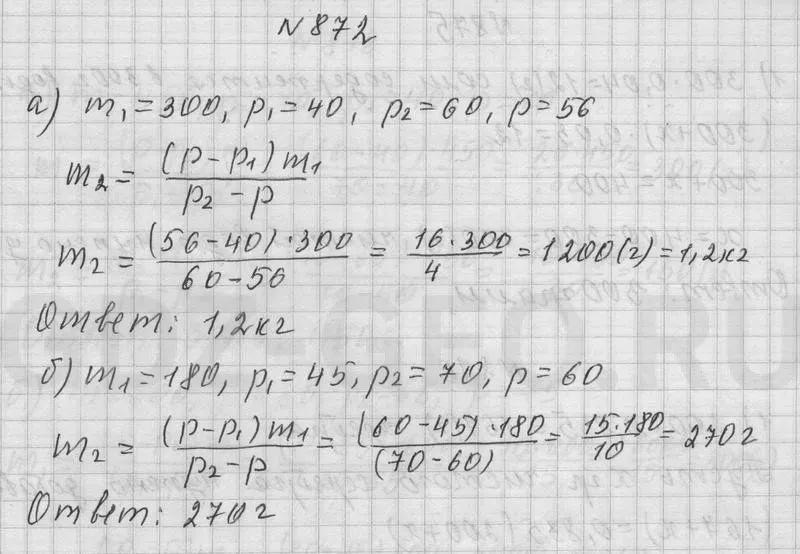 N 872
а) m₁ = 300, p₁ = 40, p₂ = 60, p = 56
m₂ = (p - p₁) m₁ / p₂ - p
m₂ = (56 - 40) · 300 / 60 - 56 = 16 · 300 / 4 = 1200 (г) = 1,2 кг
Ответ: 1,2 кг
б) m₁ = 180, p₁ = 45, p₂ = 70, p = 60
m₂ = (p - p₁) m₁ / p₂ - p = (60 - 45) · 180 / (70 - 60) = 15 · 180 / 10 = 270 г
Ответ: 270 г